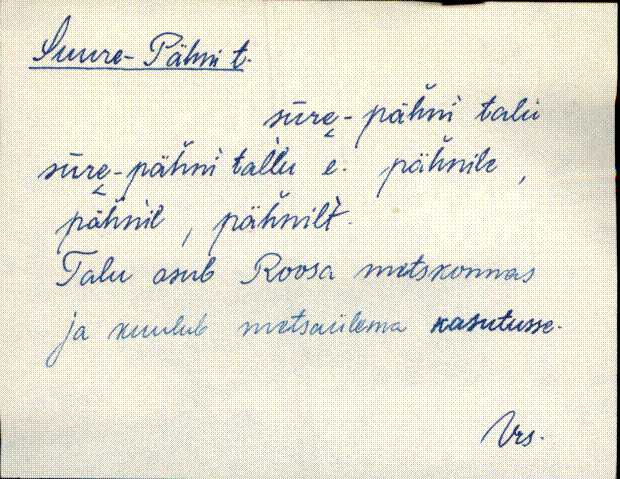 Suure-Pähni t.
sūre̬-pähǹi talu
sūre̬-pähǹi tal̀lu e. pähǹile,
pähǹil, pähǹilt̀.
Talu asub Roosa metskonnas
ja kuulub metsaülema kasutusse.
Vrs.